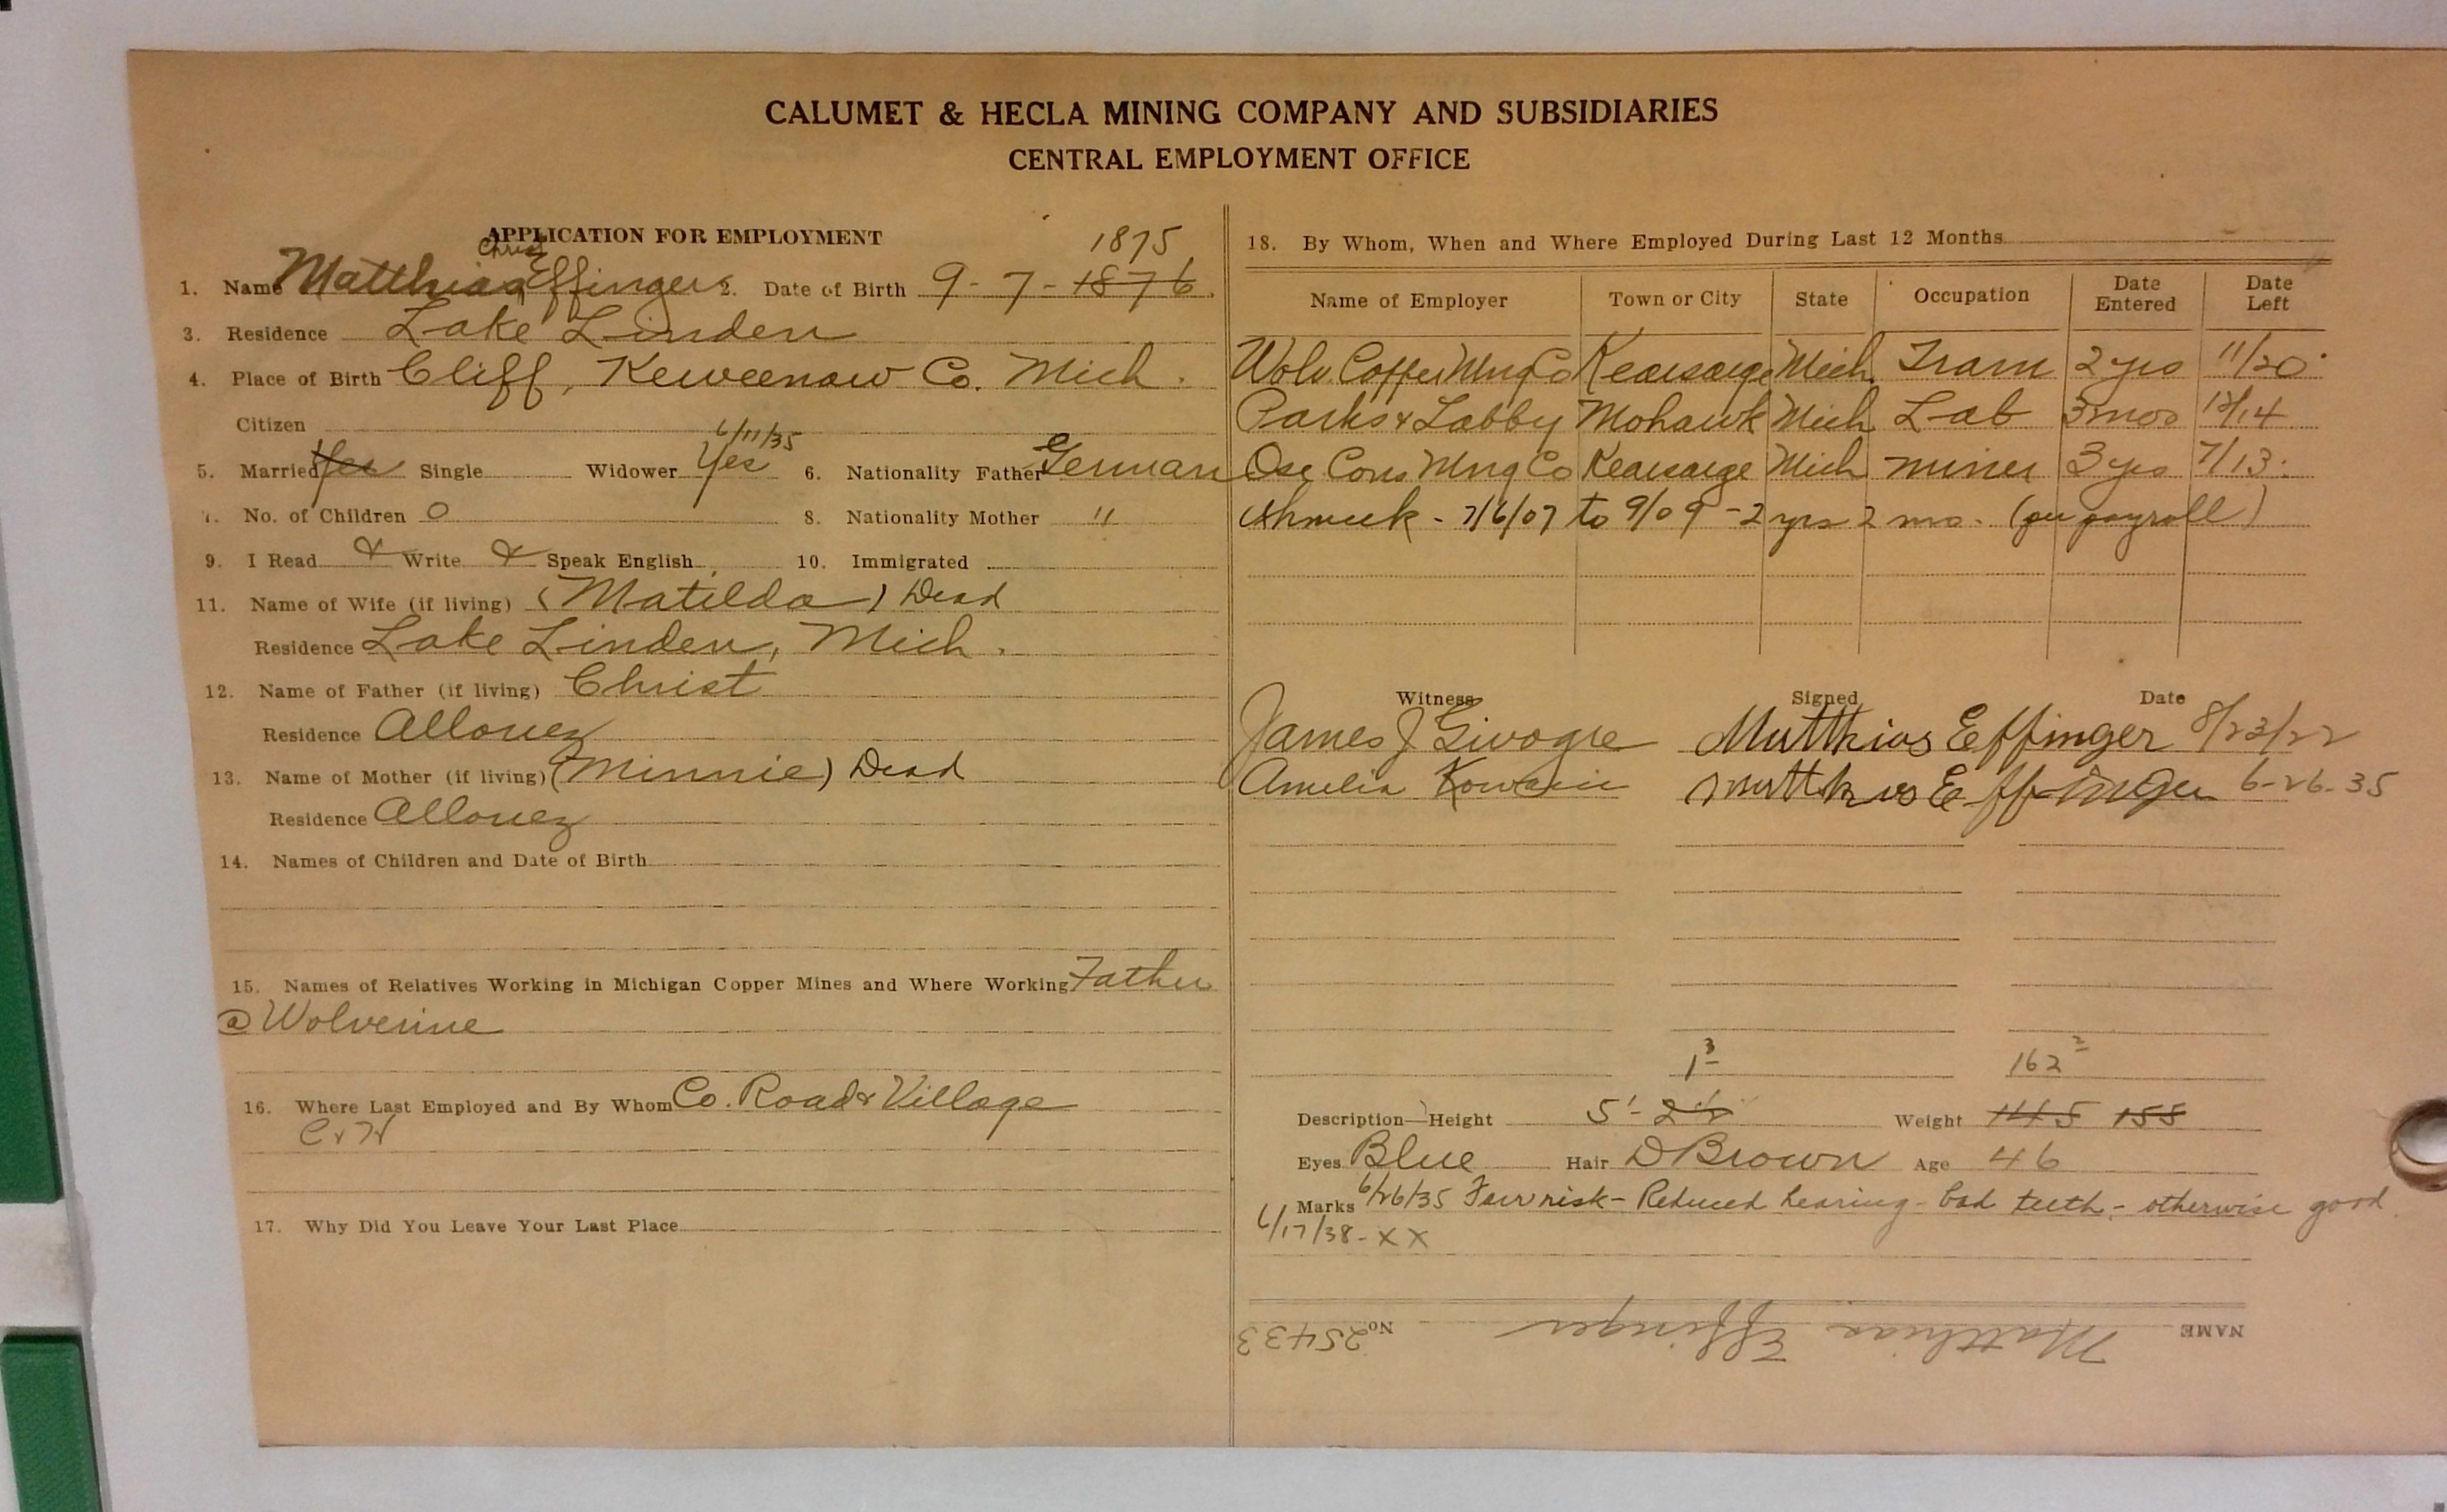 CALUMET & HECLA MINING COMPANY AND SUBSIDIARIES
CENTRAL EMPLOYMENT OFFICE
APPLICATION FOR EMPLOYMENT
Christ 1875
1. Name Matthias Effinger 2. Date of Birth 9-7-1876
3. Residence Lake Linden
4. Place of Birth Cliff, Keweenaw Co. Mich.
Citizen
6/11/35
5. Married Yes Single Widower Yes 6. Nationality Father German
7. No. of Children 0 8. Nationality Mother "
9. I Read & Write & Speak English 10. Immigrated
11. Name of Wife (if living) (Matilda) Dead
Residence Lake Linden, Mich.
12. Name of Father (if living) Christ
Residence Allouez
13. Name of Mother (if living) (Minnie) Dead
Residence Allouez
14. Names of Children and Date of Birth
15. Names of Relatives Working in Michigan Copper Mines and Where Working Father
@ Wolverine
16. Where Last Employed and By Whom Co. Road & Village
C & H
17. Why Did You Leave Your Last Place
18. By Whom, When and Where Employed During Last 12 Months
Name of Employer Town or City State Occupation Date Entered Date Left
Wolv. Copper Mng Co Kearsarge Mich. Tram 2 yrs 11/20
Parks & Labby Mohawk Mich Lab 3 mos 12/14
Osc Cons Mng Co Kearsarge Mich miner 3 yrs 7/13
Ahmeek - 7/6/07 to 9/09 - 2 yrs 2 mo. (per payroll)
Witness Signed Date
James J Matthias Effinger 8/23/22
Amelia Matthias Effinger 6-26-35
1 3 162 2
Description—Height 5'-2 1/2 Weight 145 155
Eyes Blue Hair D Brown Age 46
Marks 6/26/35 Fair risk - Reduced hearing - bad teeth - otherwise good
6/17/38 - XX
NAME Matthias Effinger No. 25433